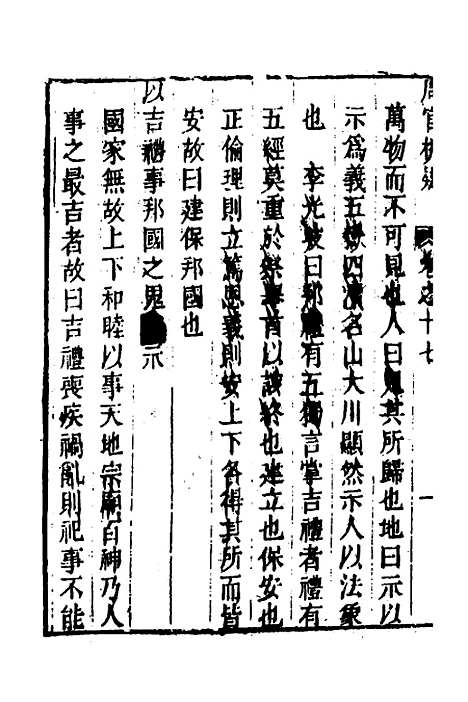 周官析疑 卷之十七 一
萬物而不可見也人曰鬼其所歸也地曰示以
示為義五嶽四瀆名山大川顯然示人以法象
也 李光坡曰邦禮有五獨言掌吉禮者禮有
五經莫重於祭舉首以該終也建立也保安也
正倫理則立篤恩義則安上下各得其所而皆
安故曰建保邦國也
以吉禮事邦國之鬼神示
國家無故上下和睦以事天地宗廟百神乃人
事之最吉者故曰吉禮喪疾禍亂則祀事不能